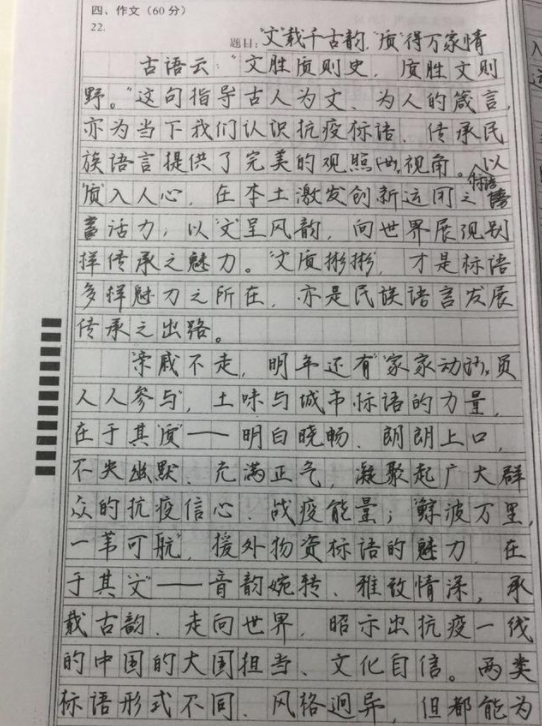 四、作文(60分)
22.
题目:"文"载千古韵,"质"得万家情
古语云:"文胜质则史,质胜文则
野。"这句指导古人为文、为人的箴言,
亦为当下我们认识抗疫标语、传承民
族语言提供了完美的观照视角。以
"质"入人心,在本土激发创新运用之标语
活力,以"文"呈风韵,向世界展现别
样传承之魅力。"文质彬彬",才是标语
多样魅力之所在,亦是民族语言发展
传承之出路。
"亲戚不走,明年还有""家家动员,
人人参与",土味与城市标语的力量,
在于其"质"——明白晓畅、朗朗上口,
不失幽默、充满正气,凝聚起广大群
众的抗疫信心、战疫能量;"鲸波万里,
一苇可航",援外物资标语的魅力,在
于其"文"——音韵婉转、雅致情深,承
载古韵、走向世界,昭示出抗疫一线
的中国的大国担当、文化自信。两类
标语形式不同、风格迥异,但都能为